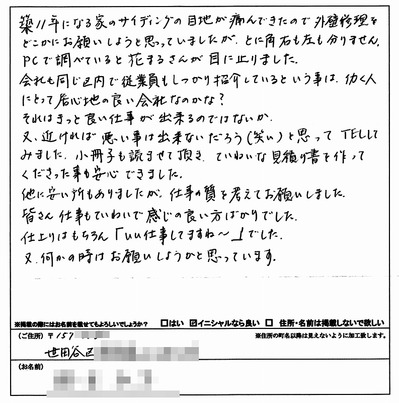 築11年になる家のサイディングの目地が痛んできたので外壁修理を
どこかにお願いしようと思っていましたが、とに角右も左も分りません。
PCで調べていると花まるさんが目に止りました。
会社も同じ区内で従業員もしっかり紹介しているという事は、幼く人
にとって居心地の良い会社なのかな?
それはきっと良い仕事が出来るのではないか.
又、近ければ悪い事は出来ないだろう(笑い)と思ってTELLして
みました。小冊子も読ませて頂き、ていねいな見積り書を作って
くださった事も安心できました。
他に安い所もありましたが、仕事の質を考えてお願いしました。
皆さん仕事もていねいで感じの良い方ばかりでした。
仕上りはもちろん「いい仕事してますね～」でした。
又、何かの時はお願いしようかと思っています。
※掲載の際にはお名前を載せてもよろしいでしょうか? □はい ☑イニシャルなら良い □ 住所・名前は掲載しないで欲しい
(ご住所) 〒157 ※住所の町名以降は見えないように加工致します。
世田谷区
(お名前)